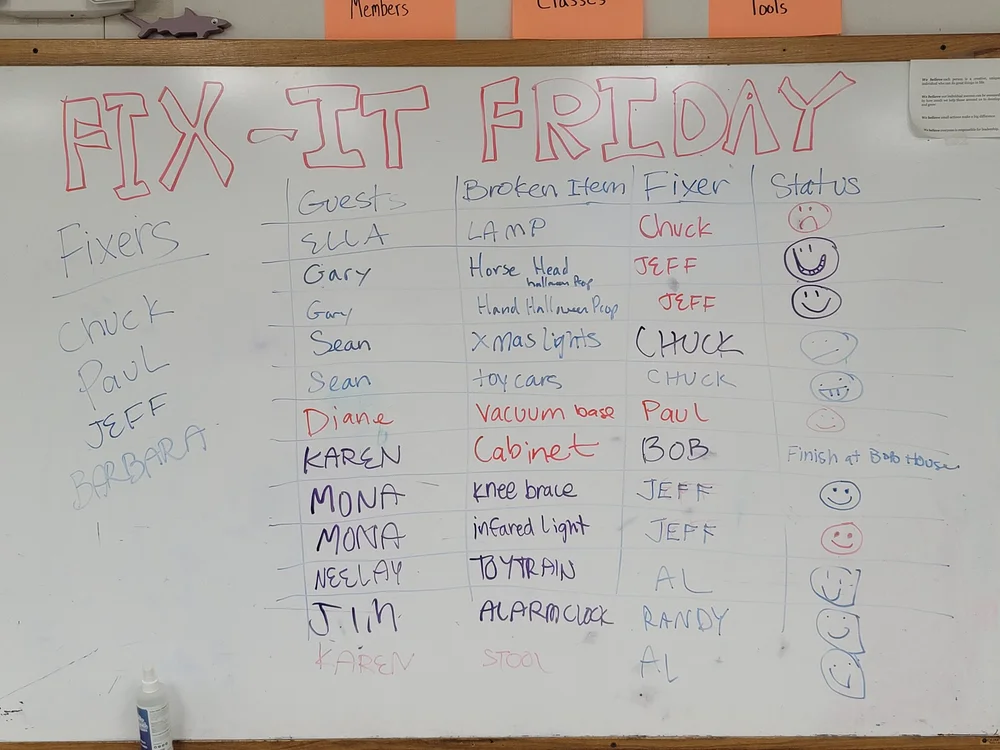 Members
Classes
Tools
FIX-IT FRIDAY
Fixers
Chuck
PAUL
JEFF
BARBARA
Guests Broken Item Fixer Status
ELLA LAMP Chuck
Gary Horse Head JEFF
halloween Prop
Gary Hand Halloween Prop JEFF
Sean Xmas lights CHUCK
Sean toy cars CHUCK
Diane Vacuum base Paul
KAREN Cabinet BOB Finish at Bob House
MONA knee brace JEFF
MONA infared light JEFF
NEELAY TOYTRAIN AL
JIM ALARM CLOCK RANDY
KAREN STOOL AL